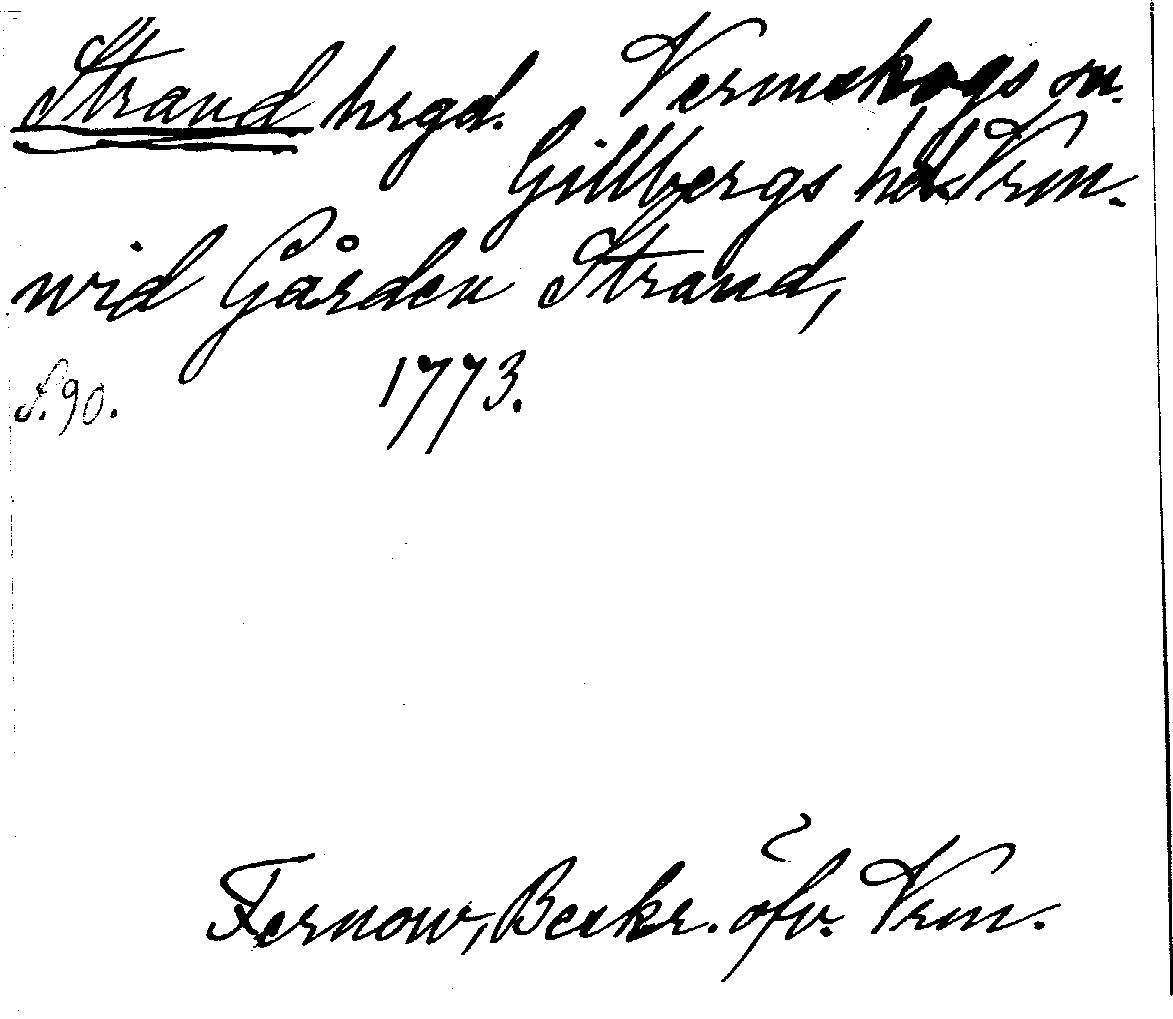 Strand hrgd. Vermskogs sn.
Gillbergs hd Vrm.
wid Gården Strand,
s. 90. 1773.
Fernow, Beskr. öfv. Vrm.